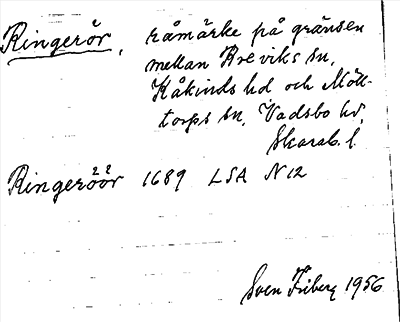 Ringerör, råmärke på gränsen
mellan Breviks sn,
Kåkinds hd och Möl-
torps sn, Vadsbo hd,
Skarab. l.
Ringeröör 1689 LSA N12
Sven Friberg 1956